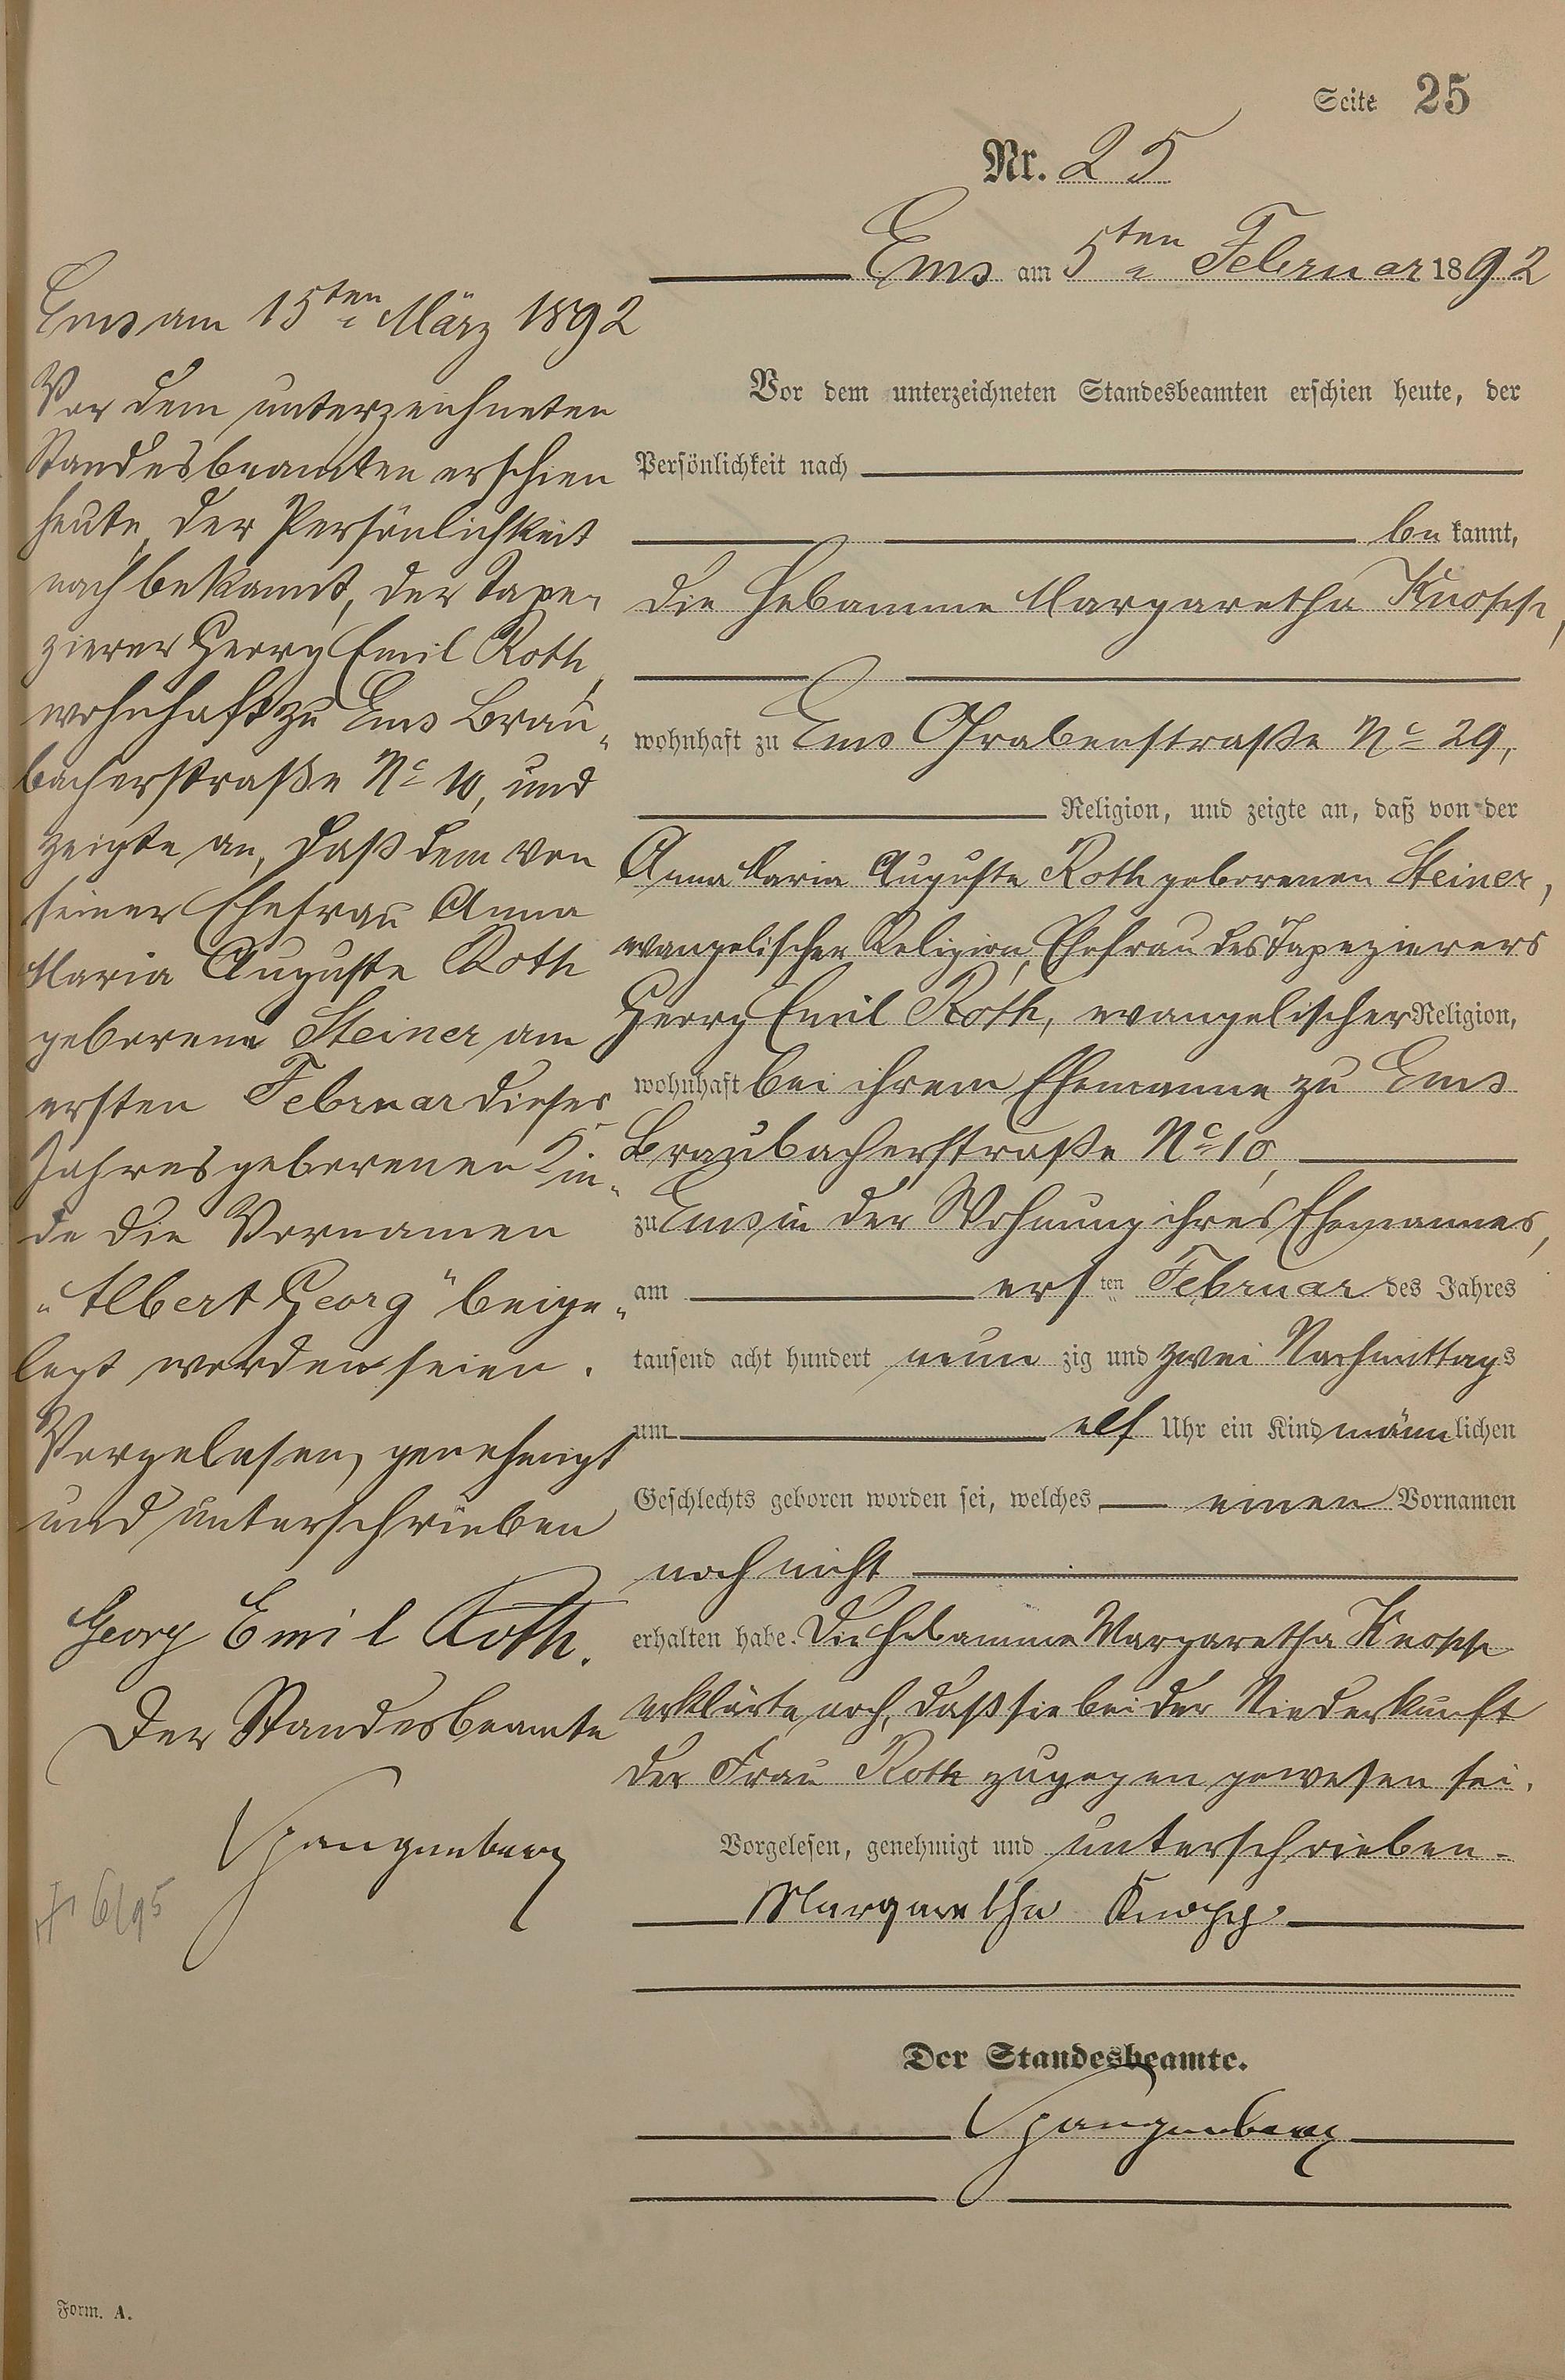 Seite 25
Nr. 25
Ems am 5ten Februar 1892
Vor dem unterzeichneten Standesbeamten erschien heute, der
Persönlichkeit nach
be kannt,
die Hebamme Margaretha Knopp,
wohnhaft zu Ems Grabenstraße No 29,
Religion, und zeigte an, daß von der
Anna Maria Auguste Roth geborenen Steiner,
evangelischer Religion, Ehefrau des Tapezierers
Georg Emil Roth, evangelischer Religion,
wohnhaft bei ihrem Ehemanne zu Ems
Braubacherstraße No 10,
zu Ems in der Wohnung ihres Ehemannes,
am ersten Februar des Jahres
tausend acht hundert neun zig und zwei Nachmittags
um elf Uhr ein Kind männlichen
Geschlechts geboren worden sei, welches einen Vornamen
noch nicht
erhalten habe. Die Hebamme Margaretha Knopp
erklärte noch, daß sie bei der Niederkunft
der Frau Roth zugegen gewesen sei.
Vorgelesen, genehmigt und unterschrieben.
Margaretha Knopp
Der Standesbeamte.
Spangenberg
Ems am 15ten März 1892
Vor dem unterzeichneten
Standesbeamten erschien
heute, der Persönlichkeit
nach bekannt, der Tape-
zierer Georg Emil Roth,
wohnhaft zu Ems Brau-
bacherstraße No 10, und
zeigte an, daß dem von
seiner Ehefrau Anna
Maria Auguste Roth
geborene Steiner am
ersten Februar dieses
Jahres geborenen Kin-
de die Vornamen
"Albert Georg" beige-
legt worden seien.
Vorgelesen, genehmigt
und unterschrieben
Georg Emil Roth.
Der Standesbeamte
Spangenberg
6/95
Form. A.